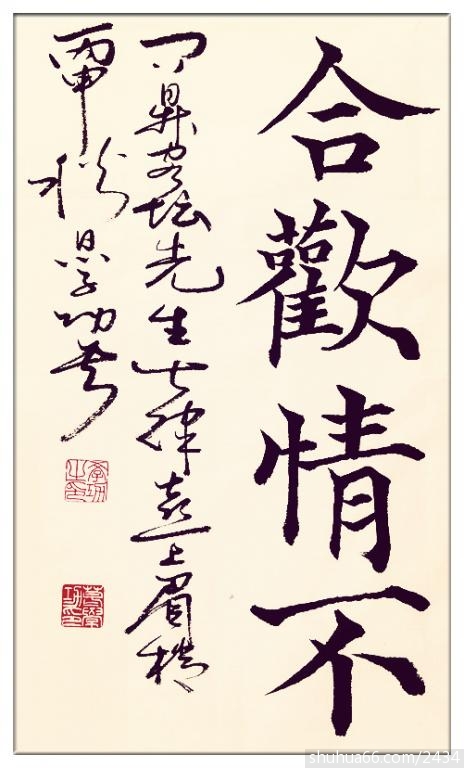 合歡情不
鼎客坛先生七律喜上眉梢
丙申秋学功书
shuhua66.com/2434